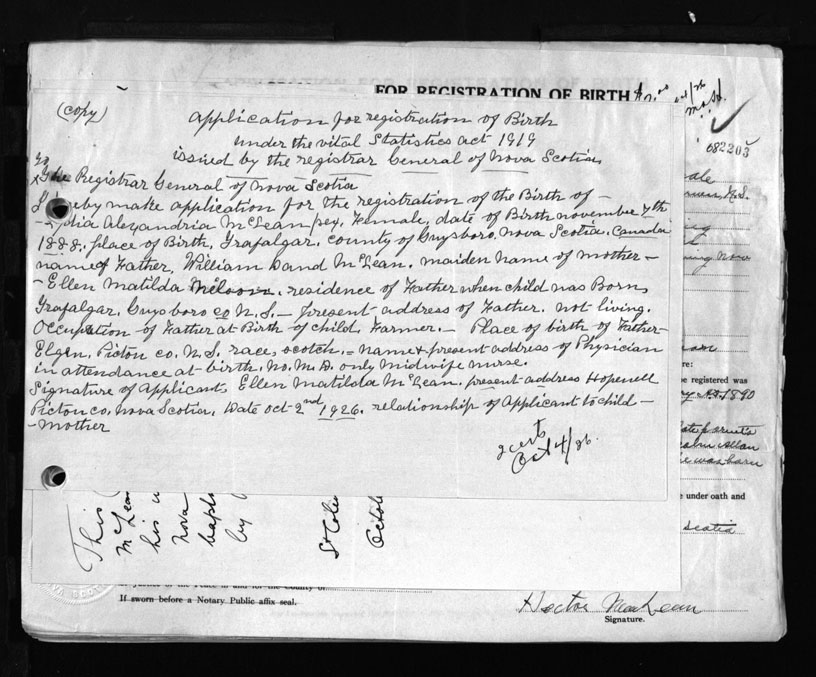 FOR REGISTRATION OF BIRTH
(copy)
Application for registration of Birth
under the vital Statistics act 1919
issued by the registrar General of Nova Scotia
682203
The Registrar General of Nova Scotia
I hereby make application for the registration of the Birth of –
– Lydia Alexandria McLean, sex, Female, date of Birth november 7th
1888. place of Birth, Trafalgar, county of Guysboro, Nova Scotia. Canada
name of Father, William David McLean. maiden name of mother –
– Ellen Matilda . residence of Father when child was Born,
Trafalgar, Guysboro co N.S. – present address of Father. not living.
Occupation of Father at Birth of child, Farmer. – Place of birth of Father –
Elgin, Pictou co. N.S. race, scotch. – name & present address of Physician
in attendance at birth. no. M.D. only midwife nurse.
Signature of Applicant, Ellen Matilda McLean. present address Hopewell
Pictou co, Nova Scotia. Date oct 2nd 1926. relationship of Applicant to child –
– Mother
2 certs
Oct 4/26.
re:
be registered was
1890
Allan
he was born
e under oath and
Scotia
This
McLean
his
nova
bapt
by
St Colu
Octob
If sworn before a Notary Public affix seal.
Hector MacLean
Signature.